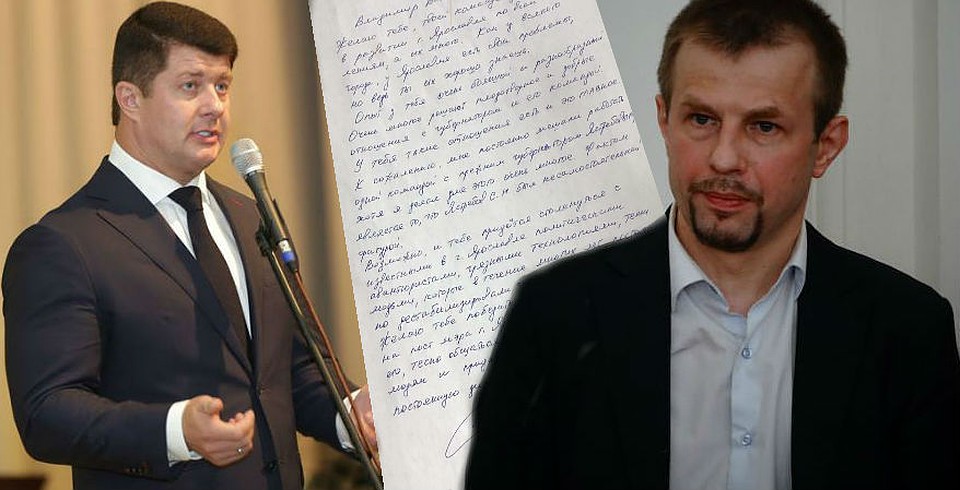 Владимир
Желаю тебе, твоей команде
в развитии г. Ярославля по всем
лениям, а их много. Как у всякого
города, у Ярославля есть свои проблемы,
но ведь ты их хорошо знаешь.
Опыт у тебя очень большой и разнообразный.
Очень многое решают плодотворное и добрые
отношения с губернатором и его командой.
У тебя такие отношения есть и это главное.
К сожалению, мне постоянно мешали работать
одной командой с прежним губернатором Ястребовым,
хотя я делал для этого очень многое. Фактом
является то, что Ястребов С.Н. был несамостоятельной
фигурой.
Возможно, и тебе придётся столкнуться с
известными в г. Ярославле политическими
авантюристами, грязными технологиями, теми
людьми, которые в течение многих лет
но дестабилизировали
Желаю тебе победить
на пост мэра г.
его, тесно общаться
мэрам и
постоянную